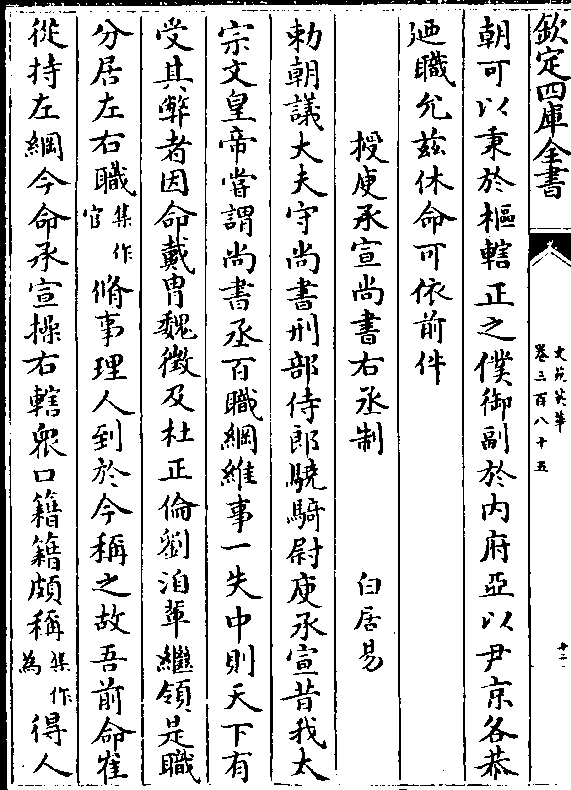 欽定四庫全書
文苑英華
卷三百八十五
十二
朝可以秉於樞轄正之僕御副於内府亞以尹京各恭
廼職允兹休命可依前件
授庾承宣尚書右丞制
白居易
勅朝議大夫守尚書刑部侍郎驍騎尉庾承宣昔我太
宗文皇帝嘗謂尚書丞百職綱維事一失中則天下有
受其弊者因命戴冑魏徵及杜正倫劉洎軰繼領是職
分居左右職集作官脩事理人到於今稱之故吾前命崔
從持左綱今命承宣操右轄衆口籍籍頗稱集作為得人